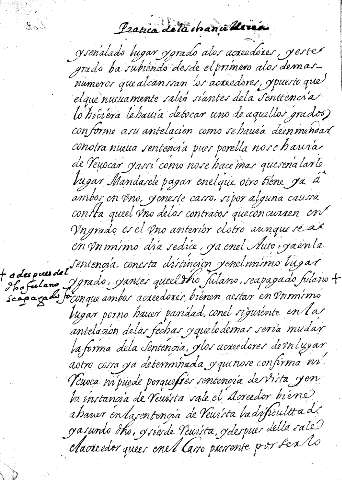 Pratica de la chancilleria
y señalado lugar y grado alos acreedores, y este
grado ba subiendo desde el primero alos demas
numeros que alcansan los acreedores, y puesto que
el que nuevamente salio siantes dela Senttencia
lo hiciera le havia de tocar uno de aquellos grados
conforme a su antelacion como se havia de
con otra nueva sentencia pues por ella no se havria
de Revocar y assi como no se hace mas que señalarle
lugar Mandasele pagar en el que otro tiene ya
ambos en uno, y en este casso, si por alguna causa
consta que el uno delos contratos que concurren en
un grado es el uno anterior el otro aunque sea
en un mismo dia se dice, ya en el Auto, ya en la
sentencia con esta distincion y en el mismo lugar
y grado, y antes que el dho fulano, sea pagado fulano +
+ o despues del
dho fulano
sea pagado
con que ambos acreedores bienen a estar en un mismo
lugar pero no haver paridad, con el siguiente en las
antelacion delas fechas y que lo demas seria mudar
la forma dela Sentencia, y los acreedores de un lugar
a otro cossa ya determinada y que no se confirma ni
Revoca ni puede porque si es sentencia de vista y en
la instancia de Revista sale el Acreedor biene
a haver en la sentencia de Revista la dificultad
ya sundo dho, y si es de Revista, y despues della sale
el acreedor que es en el Casso presente por ser lo